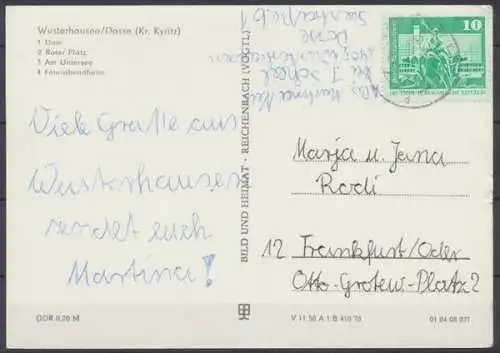 Wusterhausen/Dosse (Kr. Kyritz)
1 Dom
2 Roter Platz
3 Am Untersee
4 Ferienheim
Viele Grüße aus
Wusterhausen
sendet euch
Martina!
DDR 0,20 M
BILD UND HEIMAT · REICHENBACH (VOGTL)
Dosse
10
Marja u. Jana
Rodi
12 Frankfurt/Oder
Otto-Grotew-Platz 2
V 11 50 A 1/B 410/75
01 04 08 077